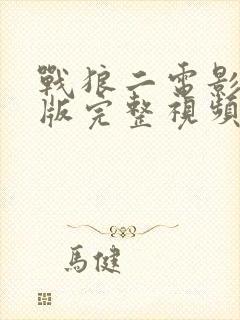 戰狼二電影
版完整視頻
馬健